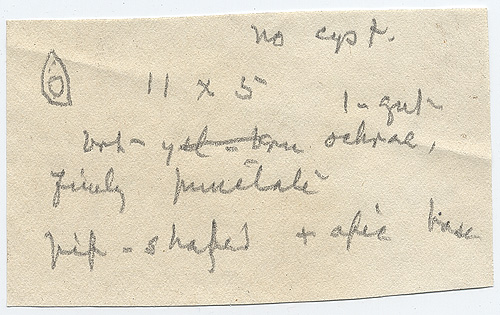 no cyst.
11 x 5
1-gut-
brt- yel - brn ochrac,
finely punctate
pip-shaped + apic